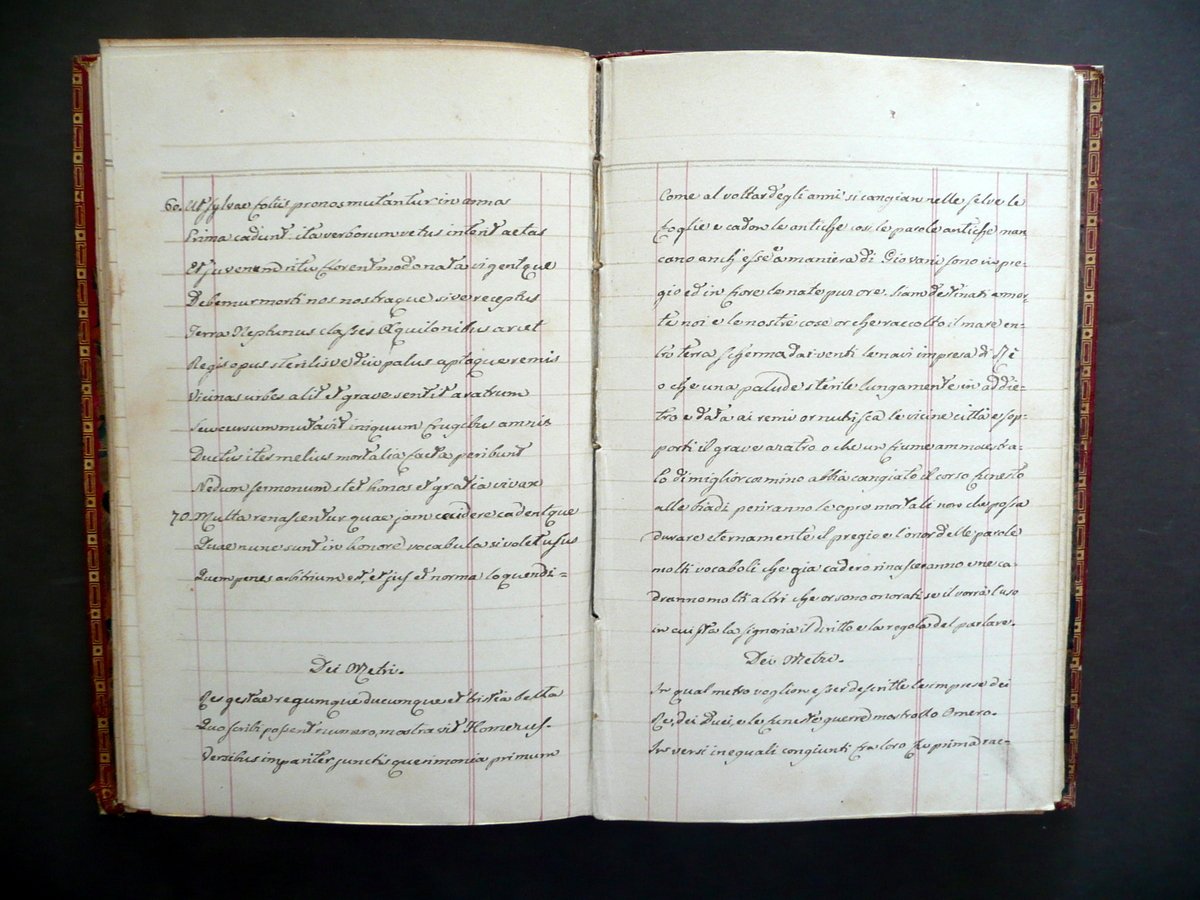 60. Ut sylvae foliis pronos mutantur in annos
Prima cadunt. ita verborum vetus interit aetas
Et juvenum ritu florent modo nata vigentque
Debemur morti nos nostraque sive receptus
Terra Neptunus classes Aquilonibus arcet
Regis opus sterilisve diu palus aptaque remis
Vicinas urbes alit et grave sentit aratrum
Seu cursum mutavit iniquum frugibus amnis
Doctus iter melius mortalia facta peribunt
Nedum sermonum stet honos et gratia vivax
70. Multa renascentur quae jam cecidere cadentque
Quae nunc sunt in honore vocabula si volet usus
Quem penes arbitrium est, et jus et norma loquendi =
Dei Metri.
Res gestae regumque ducumque et tristia bella
Quo scribi possent numero, mostravit Homerus.
Versibus impariter junctis querimonia primum
Come al voltar degli anni si cangian nelle selve le
foglie e cadon le antiche così le parole antiche man
cano anch'esse a maniera di Giovani sono in pre=
gio ed in fiore le nate pur ore. siam destinati a mor=
te noi e le nostre cose or che raccolto il mare en=
tro terra scherma dai venti le navi impresa di Rè
o che una palude sterile lungamente in addie=
tro e data ai remi or nutrisca le vicine città e sop=
porti il grave aratro o che un fiume ammaestra=
to di miglior comino abbia cangiato il corso funesto
alle biadi periranno le opre mortali non che possa
durare eternamente il pregio e l'onor delle parole
molti vocaboli che gia cadero rinasceranno e ne ca=
dranno molti altri che or sono onorati se il vorrà l'uso
in cui sta la signoria il diritto e la regola del parlare.
Dei Metri.
In qual metro voglion esser descritte le imprese dei
Re, dei Duci, e le funeste guerre mostrollo Omero.
In versi ineguali congiunti fra loro fu prima rac=